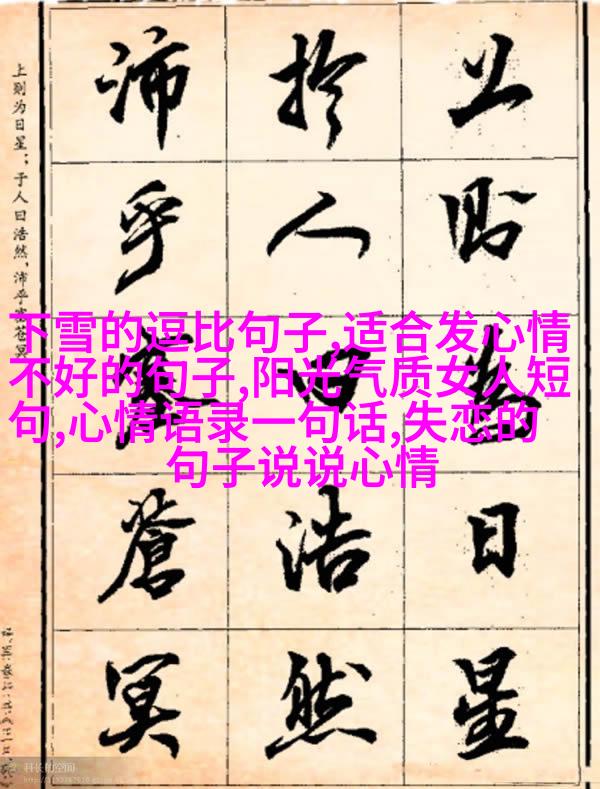 上則為日星
於人曰浩然
沛乎塞蒼冥
上则为日星；于人曰浩然，沛乎塞苍冥
下雪的逗比句子,适合发心情
不好的句子,阳光气质女人短
句,心情语录一句话,失恋的
句子说说心情
科长的空间